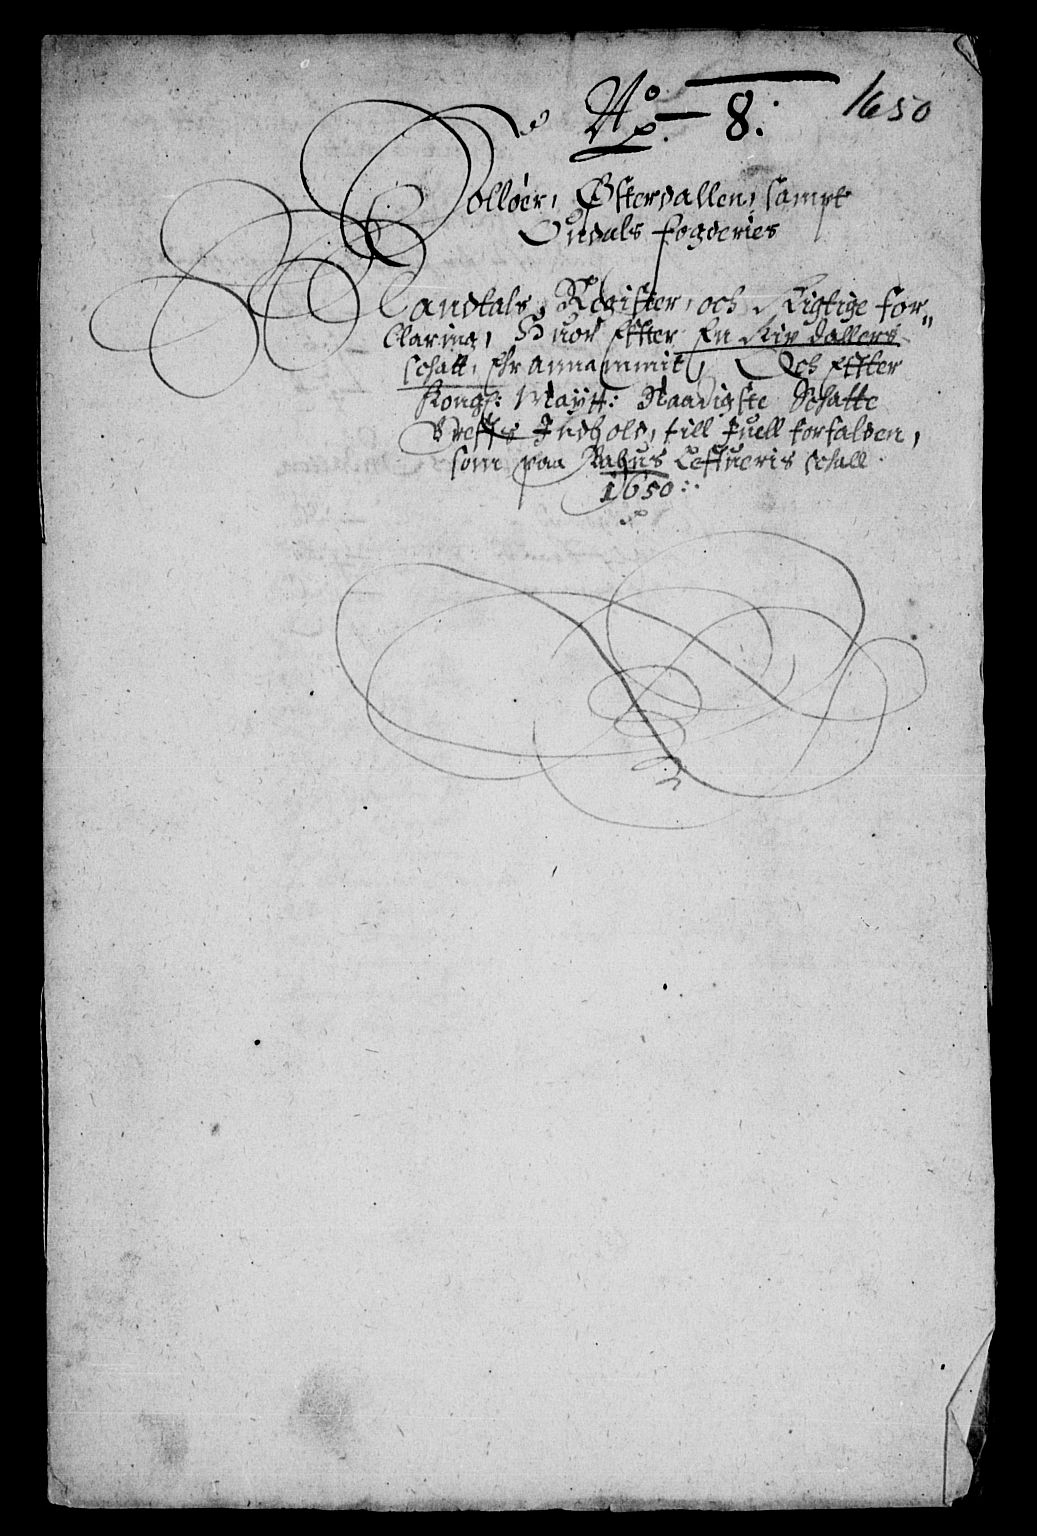 No 8. 1650
Solløer, Østerdallen, sampt
Oudals fogderies
Mandtals, Register, och Rigtige for„
Claring, Huor Effter En Rix dallers
schatt, Ehr annammit, Och Effter
Kongs: Maytt: Naadigste Schatte
Breffs Indhold, till Juell forfalden,
som paa Bahus Leffueris schall
1650: